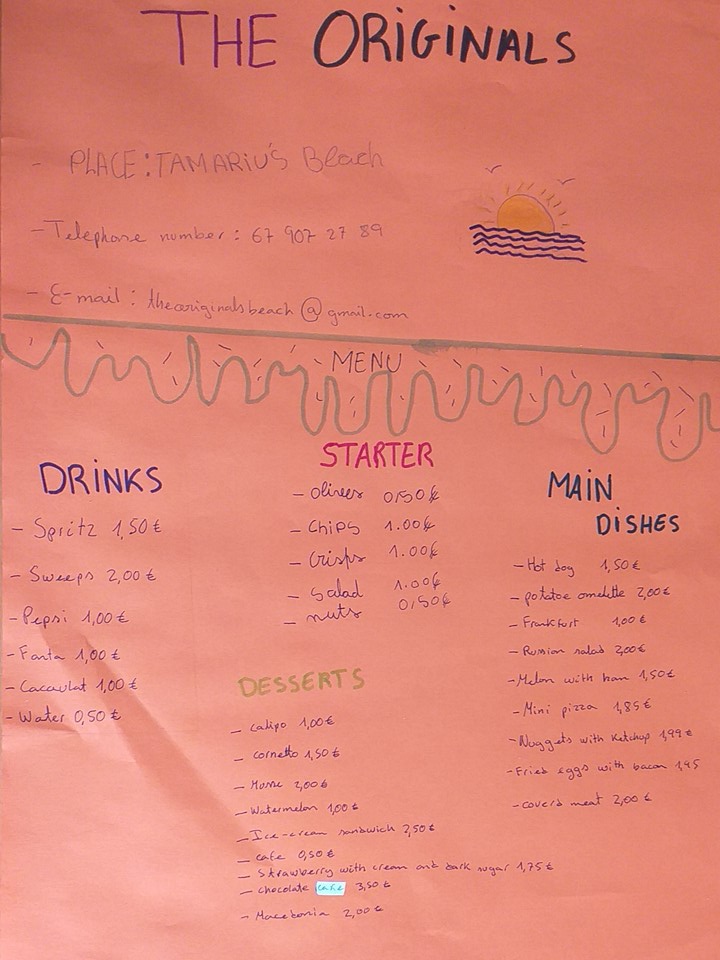 THE ORIGINALS
- PLACE: TAMARIU'S Beach
- Telephone number: 67 907 27 89
- E-mail: theoriginalsbeach@gmail.com
MENU
DRINKS
- Spritz 1,50€
- Sweeps 2,00€
- Pepsi 1,00€
- Fanta 1,00€
- Cacaulat 1,00€
- Water 0,50€
STARTER
- Olives 0,50€
- Chips 1.00€
- Crisps 1.00€
- Salad 1.00€
- nuts 0,50€
MAIN
DISHES
- Hot dog 1,50€
- potatoe omelette 2,00€
- Frankfurt 1,00€
- Russian salad 2,00€
- Melon with ham 1,50€
- Mini pizza 1,85€
- Nuggets with Ketchup 1,99€
- Fried eggs with bacon 1,95
- coverd meat 2,00€
DESSERTS
- calipo 1,00€
- cornetto 1,50€
- Musse 2,00€
- Watermelon 1,00€
- Ice-cream sandwich 2,50€
- cafe 0,50€
- Strawberry with cream and dark sugar 1,75€
- chocolate cake 3,50€
- Macedonia 2,00€